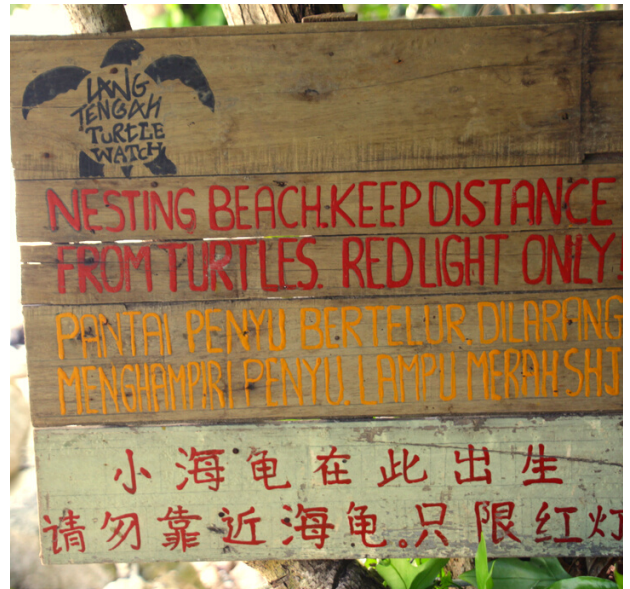 LANG
TENGAH
TURTLE
WATCH
NESTING BEACH.KEEP DISTANCE
FROM TURTLES. RED LIGHT ONLY!
PANTAI PENYU BERTELUR, DILARANG
MENGHAMPIRI PENYU. LAMPU MERAH SHJ
小海龟在此出生
请勿靠近海龟。只限红灯